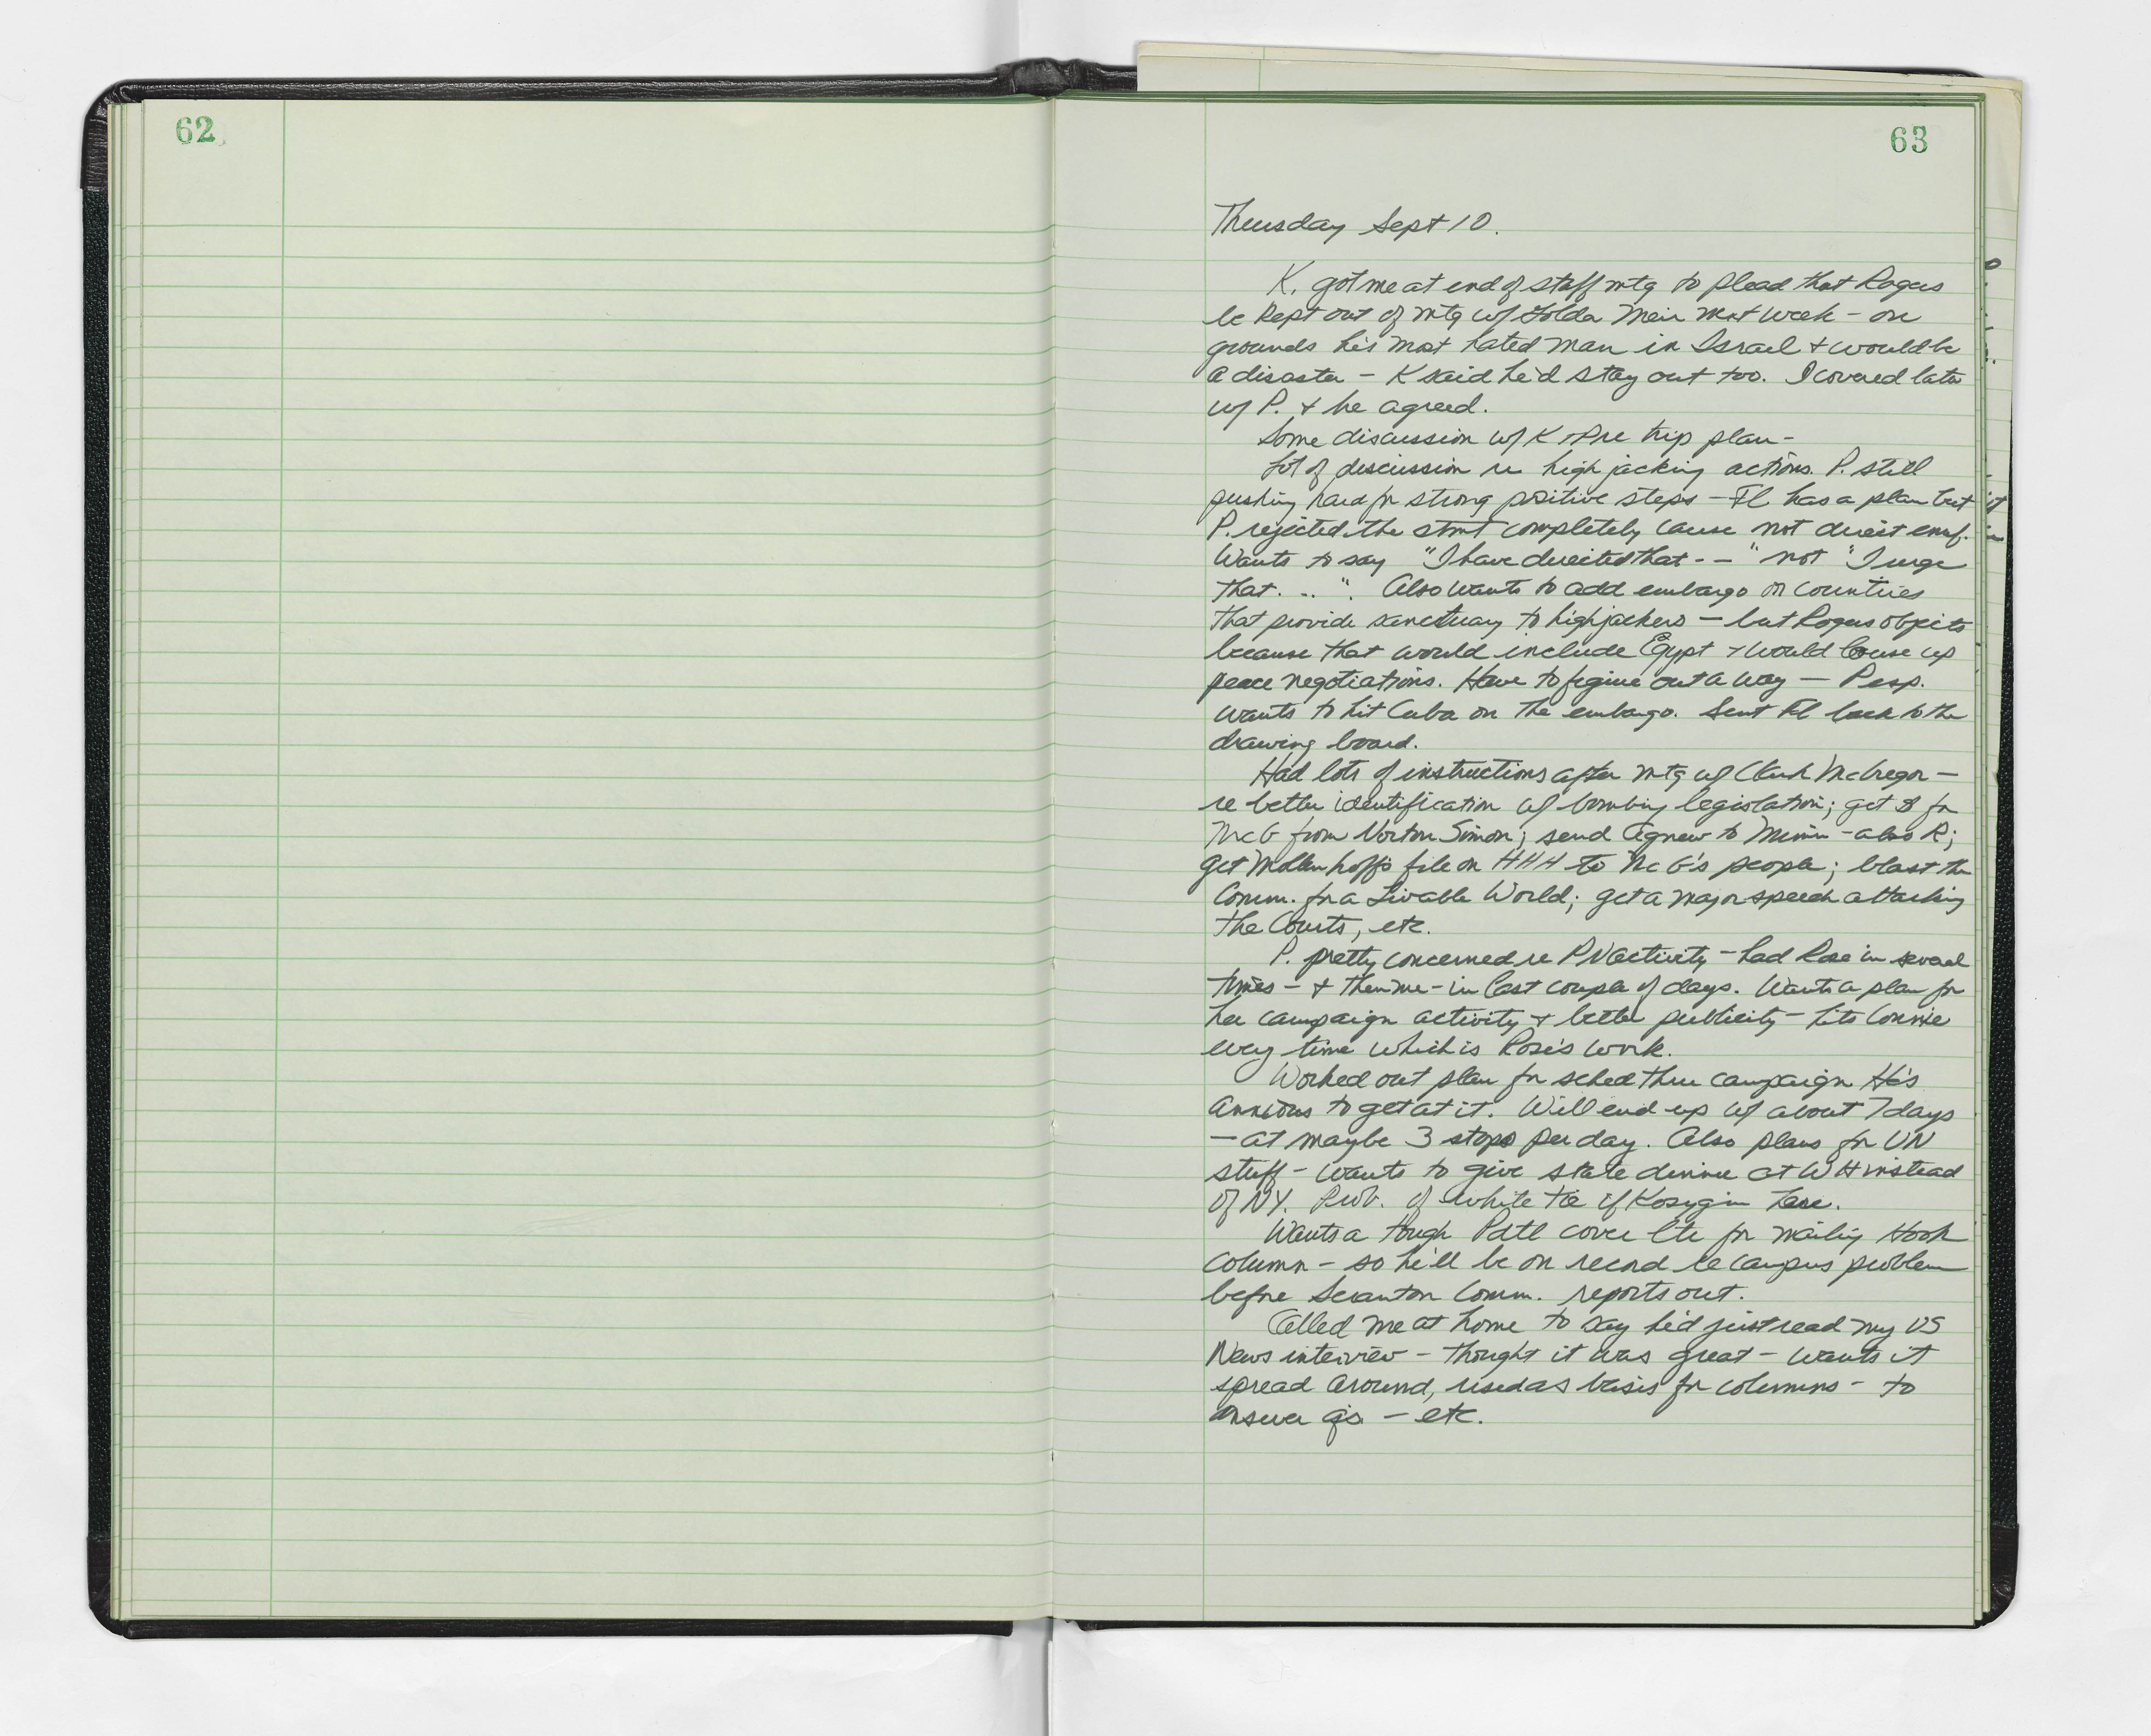 62
63
Thursday Sept 10.
K. got me at end of staff mtg to plead that Rogers
be kept out of mtg w/ Golda Meir next week - on
grounds he's most hated man in Israel + would be
a disaster - K said he'd stay out too. I covered later
w/ P. + he agreed.
Some discussion w/ K + P re trip plan -
Lot of discussion re highjacking actions. P. still
pushing hard for strong positive steps - El has a plan but
P. rejected the stmt completely cause not direct enuf.
Wants to say "I have directed that - - " not "I urge
that. . . ". Also wants to add embargo on countries
that provide sanctuary to highjackers - but Rogers objects
because that would include Egypt + would louse up
peace negotiations. Have to figure out a way - P esp.
wants to hit Cuba on the embargo. Sent El back to the
drawing board.
Had lots of instructions after mtg w/ Clark McGregor -
re better identification w/ bombing legislation; get $ for
McG from Norton Simon; send Agnew to Minn - also R;
get Mollenhoff's file on HHH to McG's people; blast the
Comm. for a Livable World; get a major speech attacking
the Courts, etc.
P. pretty concerned re PN activity - had Rose in several
times - + then me - in last couple of days. Wants a plan for
her campaign activity + better publicity - hits Connie
every time which is Rose's work.
Worked out plan for sched thru campaign He's
anxious to get at it. Will end up w/ about 7 days
- at maybe 3 stops per day. Also plans for UN
stuff - wants to give state dinner at WH instead
of NY. Prob. of white tie if Kosygin here.
Wants a tough Pdtl cover ltr for mailing Hook
column - so he'll be on record re campus problem
before Scranton Comm. reports out.
Called me at home to say he'd just read my US
News interview - thought it was great - wants it
spread around, used as basis for columns - to
answer q's - etc.